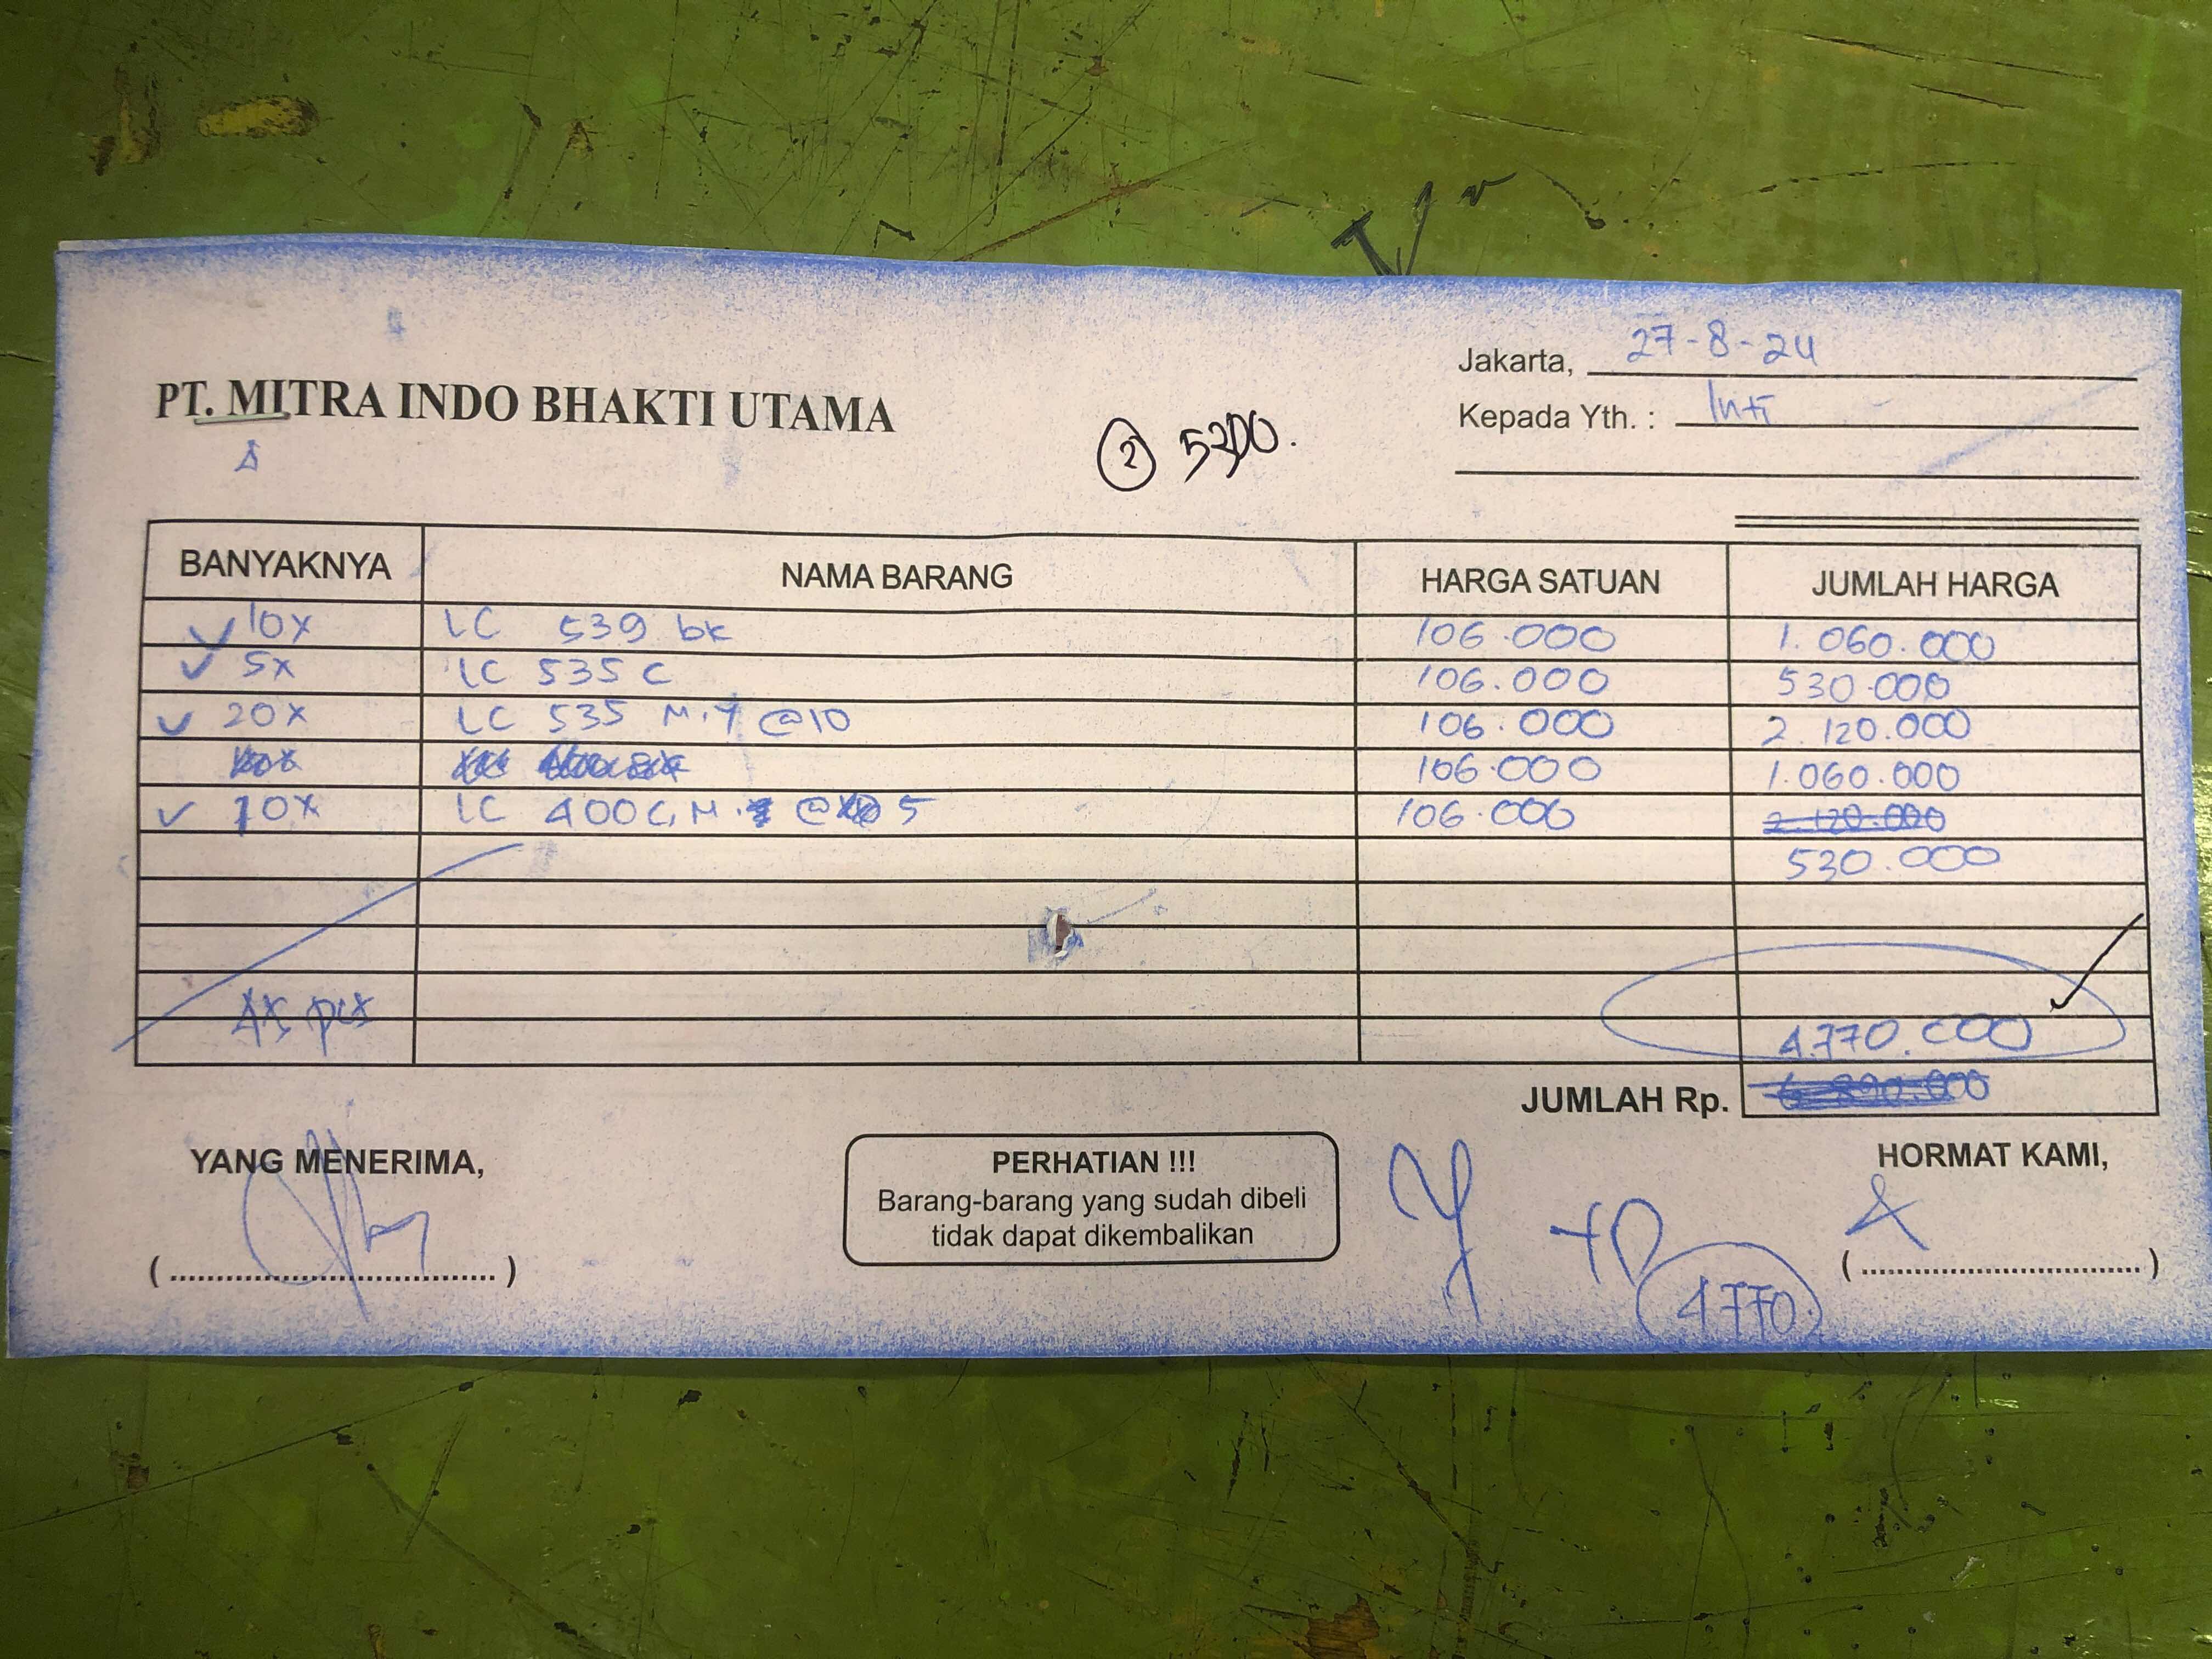 Jakarta, 27-8-24
PT. MITRA INDO BHAKTI UTAMA
Kepada Yth. : Inti
2
BANYAKNYA NAMA BARANG HARGA SATUAN JUMLAH HARGA
10x LC 539 bk 106.000 1.060.000
5x LC 535 C 106.000 530.000
20x LC 535 M.Y @10 106.000 2.120.000
106.000 1.060.000
10x LC 400 C, M. @ 5 106.000 2.120.000
530.000
pcs
4.770.000
JUMLAH Rp. 6.890.000
YANG MENERIMA, PERHATIAN !!! HORMAT KAMI,
Barang-barang yang sudah dibeli
tidak dapat dikembalikan
4770.